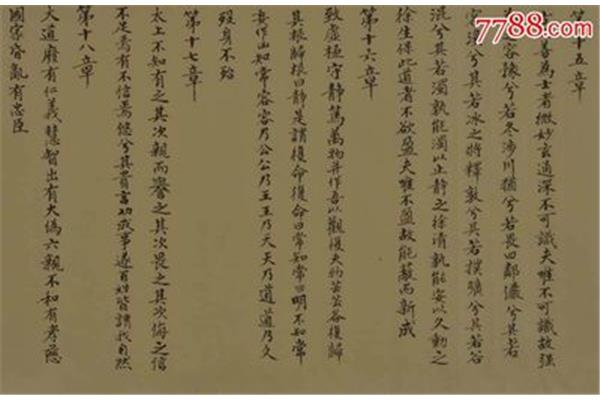 第十五章
善為士者微妙玄通深不可識夫唯不可識故強
為之容豫兮若冬涉川猶兮若畏四鄰儼兮其若
容渙兮其若冰之將釋敦兮其若樸曠兮其若谷
混兮其若濁孰能濁以止靜之徐清孰能安以久動之
徐生保此道者不欲盈夫唯不盈故能蔽而新成
第十六章
致虛極守靜篤萬物并作吾以觀復夫物芸芸各復歸
其根歸根曰靜是謂復命復命曰常知常曰明不知常
妄作凶知常容容乃公公乃王王乃天天乃道道乃久
歿身不殆
第十七章
太上不知有之其次親而譽之其次畏之其次侮之信
不足焉有不信焉悠兮其貴言功成事遂百姓皆謂我自然
第十八章
大道廢有仁義慧智出有大偽六親不和有孝慈
國家昏亂有忠臣
7788.com